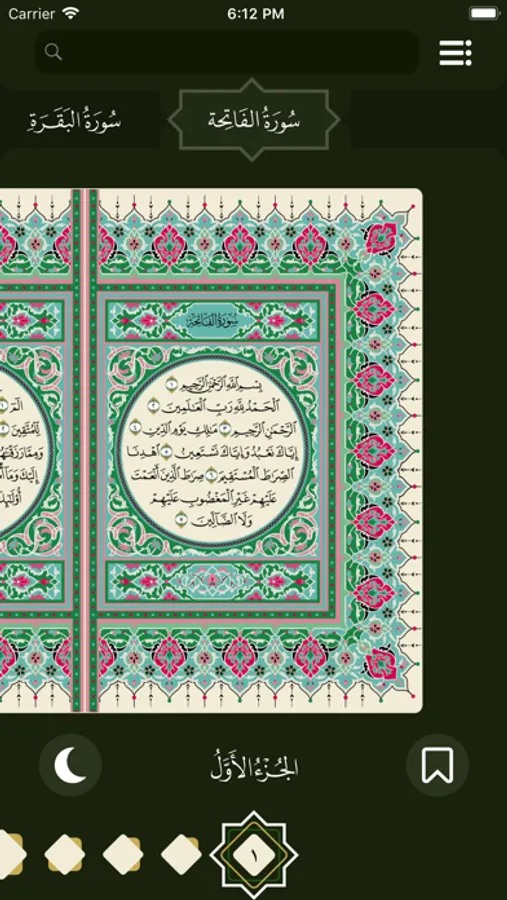 Carrier 6:12 PM
سُورَةُ الفَاتِحة
سُورَةُ البَقَرَةِ
سُورَةُ الفَاتِحَة
بِسْمِ اللَّهِ الرَّحْمَٰنِ الرَّحِيمِ ١
الْحَمْدُ لِلَّهِ رَبِّ الْعَالَمِينَ ٢
الرَّحْمَٰنِ الرَّحِيمِ ٣ مَالِكِ يَوْمِ الدِّينِ ٤
إِيَّاكَ نَعْبُدُ وَإِيَّاكَ نَسْتَعِينُ ٥ اهْدِنَا
الصِّرَاطَ الْمُسْتَقِيمَ ٦ صِرَاطَ الَّذِينَ أَنْعَمْتَ
عَلَيْهِمْ غَيْرِ الْمَغْضُوبِ عَلَيْهِمْ
وَلَا الضَّالِّينَ ٧
الم
لِلْمُتَّقِينَ
إِلَيْكَ وَمَا
الجُزْءُ الأَوَّلُ
١